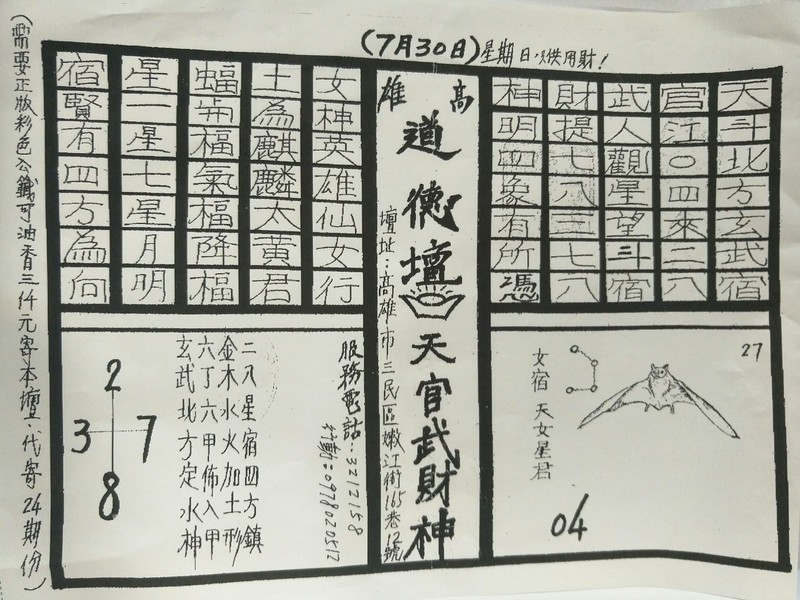 (7月30日)星期日以供用財!
(需要正版彩色公籤可油香三仟元寄本壇·代寄24期份)
天斗北方玄武宿
官江〇四來二八
武人觀星望斗宿
財提七八三七八
神明四象有所憑
高雄
道德壇
天官武財神
壇址:高雄市三民區嫩江街165巷12號
女神英雄仙女行
土為麒麟太黃君
蝙 福氣福降福
星一星七星月明
宿賢有四方為向
27
女宿 天女星君
04
服務電話:3212158
行動:0978020512
二八星宿四方鎮
金木水火加土形
六丁六甲佈入甲
玄武北方定水神
2
3 7
8